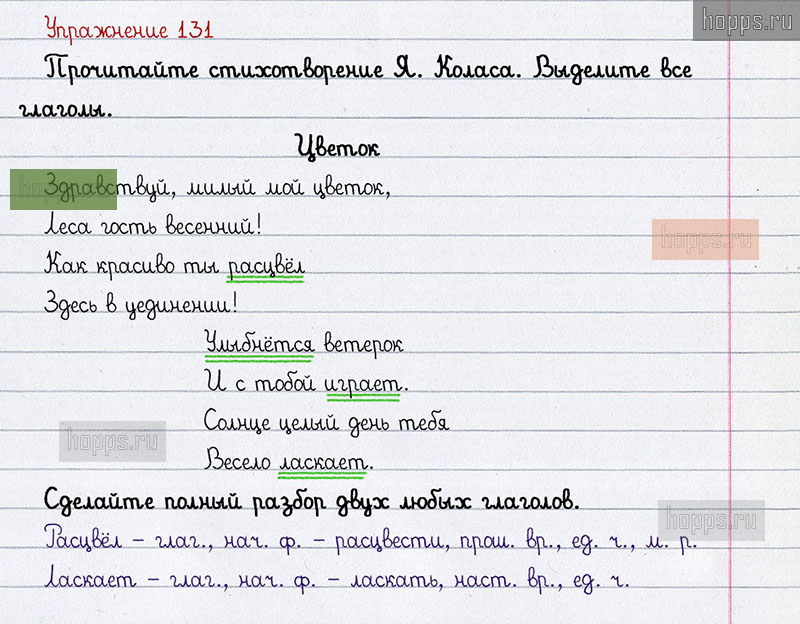 hopps.ru
Упражнение 131
Прочитайте стихотворение Я. Коласа. Выделите все
глаголы.
Цветок
Здравствуй, милый мой цветок,
Леса гость весенний!
Как красиво ты расцвёл
hopps.ru
Здесь в уединении!
Улыбнётся ветерок
И с тобой играет.
Солнце целый день тебя
hopps.ru
Весело ласкает.
Сделайте полный разбор двух любых глаголов.
hopps.ru
Расцвёл – глаг., нач. ф. – расцвести, прош. вр., ед. ч., м. р.
Ласкает – глаг., нач. ф. – ласкать, наст. вр., ед. ч.